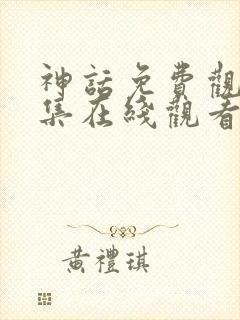 神話免費觀
集在綫觀看
黃禮琪